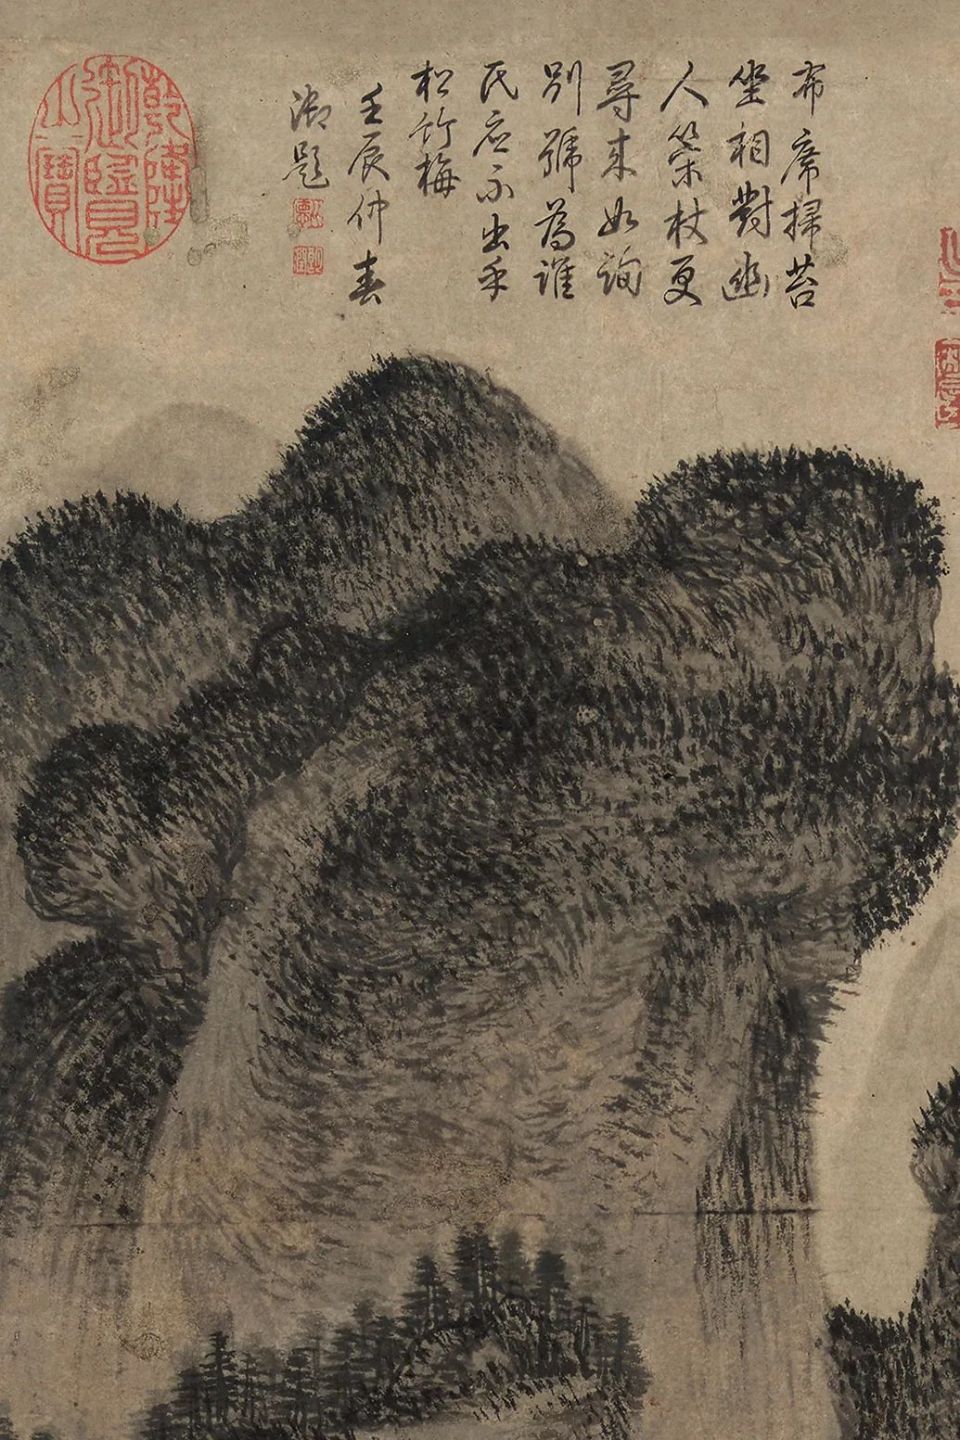 布席掃苔
坐相對幽
人策杖更
尋來如詢
別號為誰
氏應不出乎
松竹梅
壬辰仲春
御題
乾隆
御覽
之寶